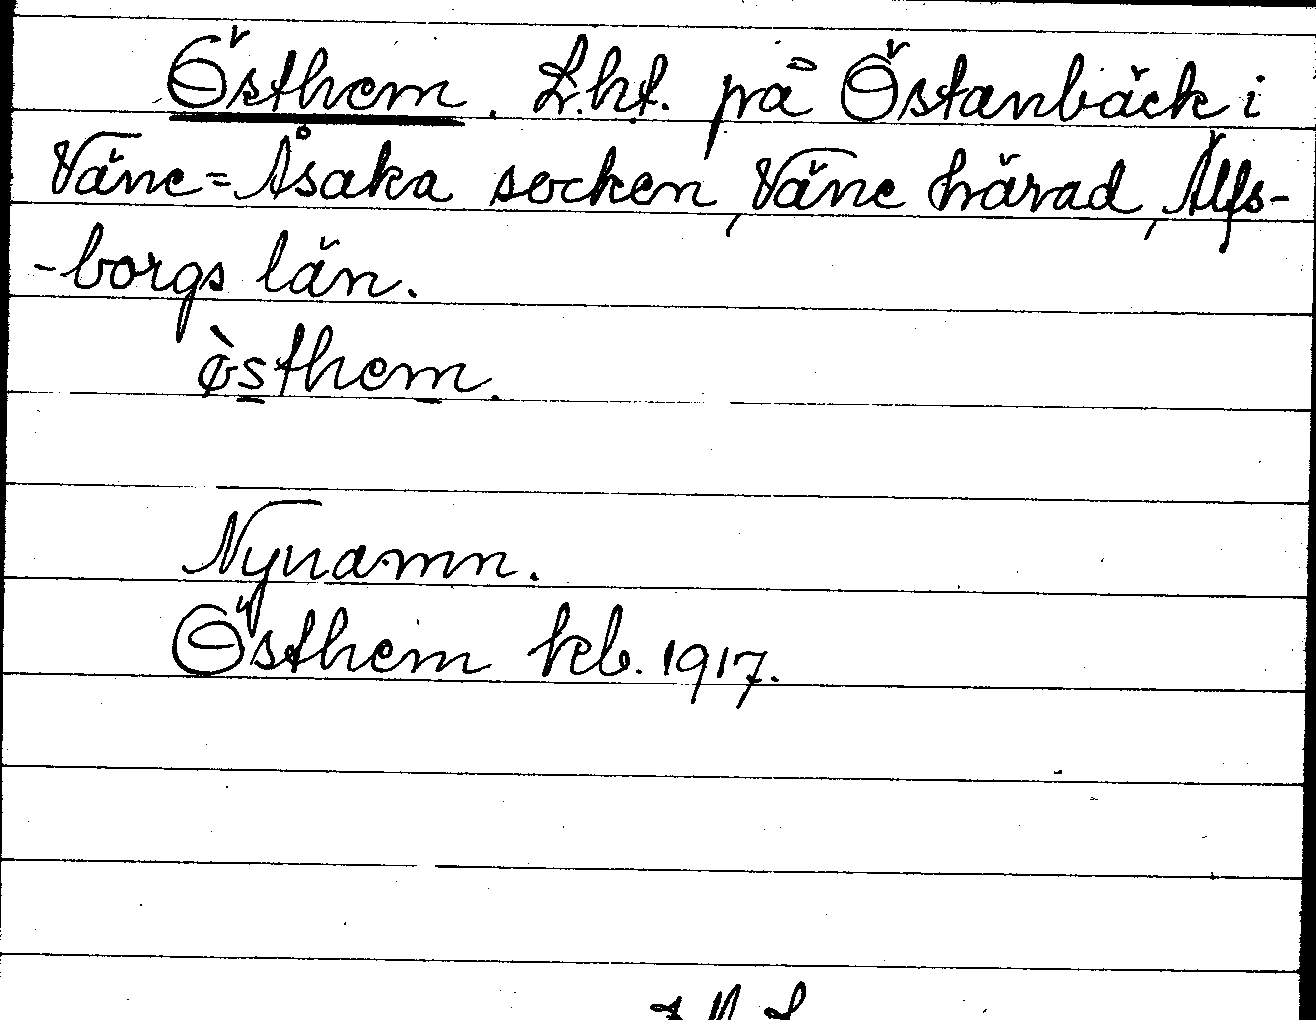 Östhem. L.ht. på Östanbäck i
Väne=Åsaka socken, Väne härad, Älfs-
-borgs län.
ø̀sthem.
Nynamn.
Östhem kcb. 1917.